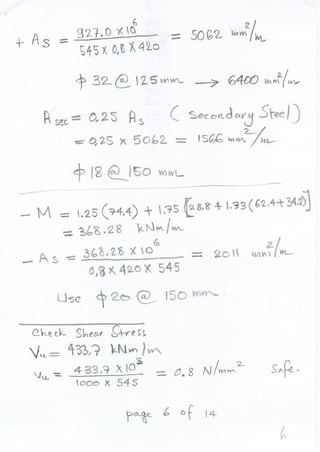 + As = 927.0 x 10⁶ / 545 x 0,8 x 420 = 5062 mm²/m
φ 32 @ 125 mm → 6400 mm²/m
Asec = 0,25 As (Secondary Steel)
= 0,25 x 5062 = 1566 mm²/m
φ 18 @ 150 mm
- M = 1.25 (74,4) + 1.75 [28.8 + 1.33 (62.4 + 34.2)]
= 368.28 kNm/m
- As = 368.28 x 10⁶ / 0,8 x 420 x 545 = 2011 mm²/m
Use φ 20 @ 150 mm
Check Shear Stress
Vu = 433,7 kNm/m
vu = 433.7 x 10³ / 1000 x 545 = 0.8 N/mm² Safe.
page 6 of 14
6